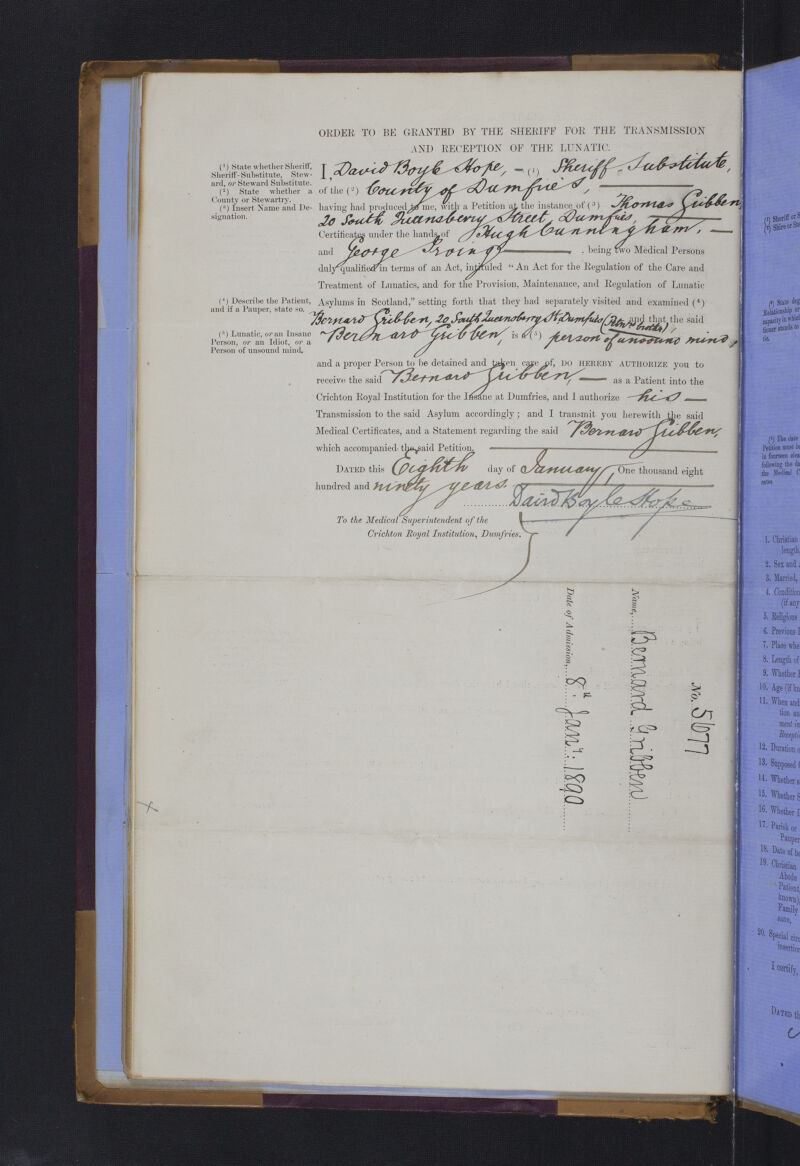 ORDER TO BE GRANTED BY THE SHERIFF FOR THE TRANSMISSION
AND RECEPTION OF THE LUNATIC.
(¹) State whether Sheriff,
Sheriff-Substitute, Stew-
ard, or Steward Substitute.
(²) State whether a
County or Stewartry.
(³) Insert Name and De-
signation.
I, David Boyle Hope, - (¹) Sheriff-Substitute,
of the (²) County of Dumfries,
having had produced to me, with a Petition at the instance of (³) Thomas Gribben
20 South Queensberry Street, Dumfries,
Certificates under the hands of Hugh Cunningham,
and George Irving, being two Medical Persons
duly qualified in terms of an Act, intituled "An Act for the Regulation of the Care and
Treatment of Lunatics, and for the Provision, Maintenance, and Regulation of Lunatic
(⁴) Describe the Patient,
and if a Pauper, state so.
Asylums in Scotland," setting forth that they had separately visited and examined (⁴)
Bernard Gribben, 20 South Queensberry St Dumfries (Petnrs brother), and that the said
(⁵) Lunatic, or an Insane
Person, or an Idiot, or a
Person of unsound mind.
Bernard Gribben, is a (⁵) person of unsound mind,
and a proper Person to be detained and taken care of, DO HEREBY AUTHORIZE you to
receive the said Bernard Gribben, — as a Patient into the
Crichton Royal Institution for the Insane at Dumfries, and I authorize his —
Transmission to the said Asylum accordingly; and I transmit you herewith the said
Medical Certificates, and a Statement regarding the said Bernard Gribben,
which accompanied the said Petition.
DATED this Eighth day of January, One thousand eight
hundred and ninety years.
David Boyle Hope
To the Medical Superintendent of the
Crichton Royal Institution, Dumfries.
No. 5677
Name, Bernard Gribben
Date of Admission, 8th Jany: 1890
1. Christian
length
2. Sex and
3. Married,
4. Condition
(if any
5. Religious
6. Previous
7. Place whe
8. Length of
9. Whether
10. Age (if kn
11. When and
tion an
ment in
Recepti
12. Duration o
13. Supposed
14. Whether s
15. Whether S
16. Whether
17. Parish or
Pauper
18. Date of
19. Christian
Abode
Patient
known),
Family
sane,
20. Special circ
insertion
I certify,
DATED th